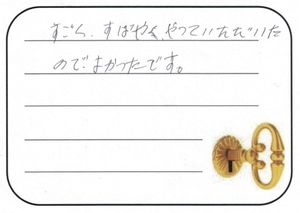 すごく、すばやく、やっていただいた
のでよかったです。